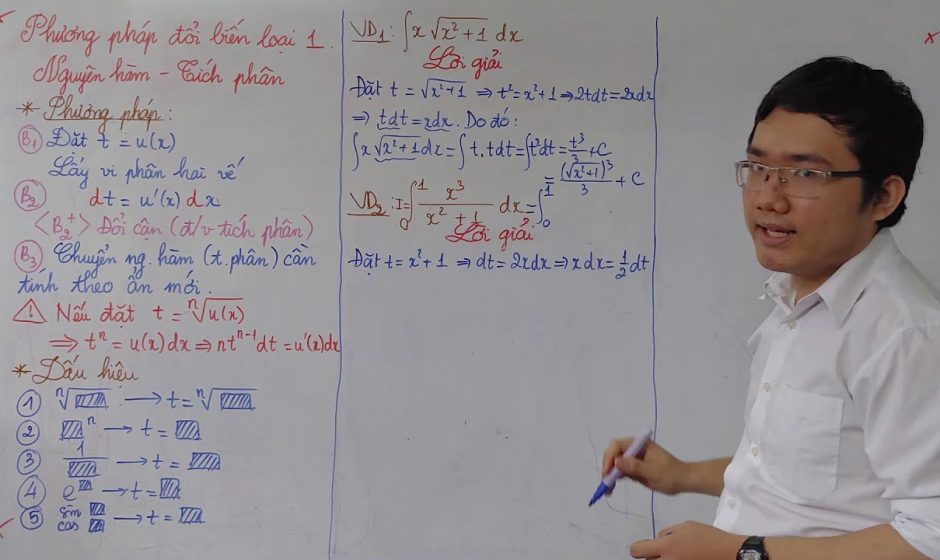 Phương pháp đổi biến loại 1.
Nguyên hàm - Tích phân
* Phương pháp:
B₁ Đặt t = u(x)
Lấy vi phân hai vế
B₂ dt = u'(x) dx
<B₂⁺> Đổi cận (đ/v tích phân)
B₃ Chuyển ng. hàm (t. phân) cần
tính theo ẩn mới.
⚠ Nếu đặt t = ⁿ√u(x)
⇒ tⁿ = u(x)dx ⇒ ntⁿ⁻¹dt = u'(x)dx
* Dấu hiệu
① ⁿ√▨ → t = ⁿ√▨
② ▨ⁿ → t = ▨
③ 1/▨ → t = ▨
④ e^▨ → t = ▨
⑤ sin ▨ cos ▨ → t = ▨
VD₁: ∫x√(x²+1) dx
Lời giải
Đặt t = √(x²+1) ⇒ t² = x²+1 ⇒ 2tdt = 2xdx
⇒ tdt = xdx. Do đó:
∫x√(x²+1)dx = ∫t.tdt = ∫t²dt = t³/3 + C
= (√(x²+1))³/3 + C
VD₂: I = ∫₀¹ x³/(x²+1) dx = ∫₀¹
Lời giải
Đặt t = x²+1 ⇒ dt = 2xdx ⇒ xdx = 1/2 dt